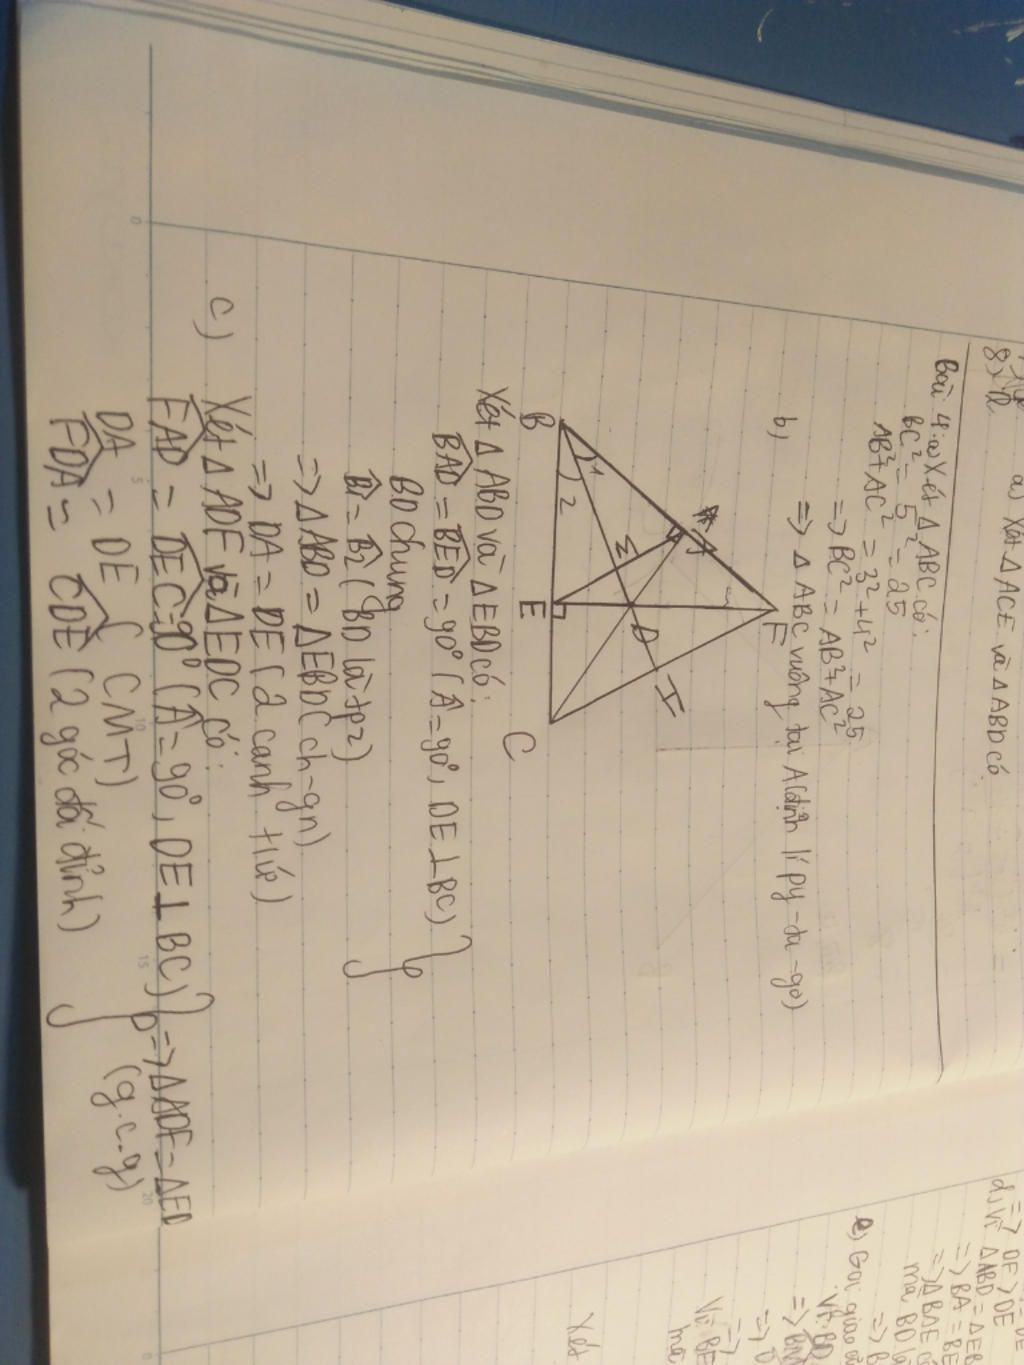 a) Xét Δ ACE và Δ ABD có
Bài 4: a) Xét Δ ABC có:
BC² = 5² = 25
AB² + AC² = 3² + 4² = 25
=> BC² = AB² + AC²
=> Δ ABC vuông tại A (định lí py-ta-go)
b)
F
A
I
D
B
1
2
E
C
Xét Δ ABD và Δ EBD có:
BAD = BED = 90° (Â = 90°, DE ⊥ BC)
BD chung
B1 = B2 (BD là tpg)
=> Δ ABD = Δ EBD (ch-gn)
=> DA = DE (2 cạnh tứ)
c) Xét Δ ADF và Δ EDC có:
FAD = DEC = 90° (Â = 90°, DE ⊥ BC)
DA = DE (CMT)
FDA = CDE (2 góc đối đỉnh)
=> Δ ADF = Δ ED
(g.c.g)
=> DF > DE
d) Vì Δ ABD = Δ EB
=> BA = BE
=> Δ BAE
mà BD là
e) Gọi giao
Vì BE
mà
Xét